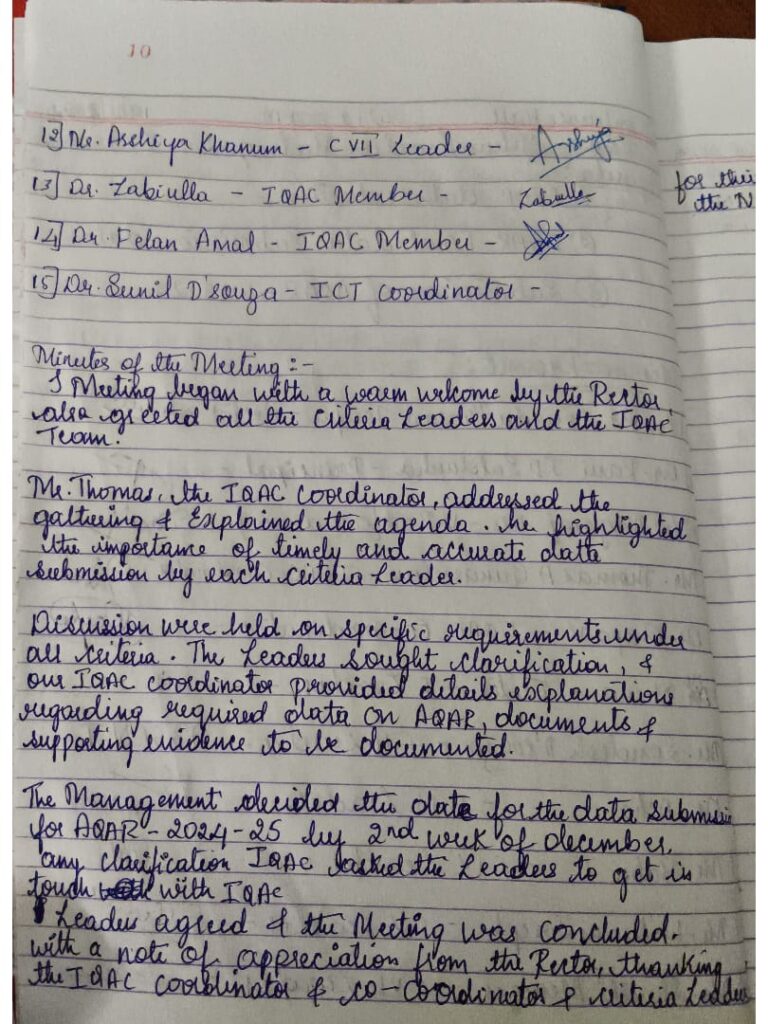 10
12] Mr. Aschiya Khanum - C VII Leader -
13] Dr. Zabiulla - IQAC Member - Zabiulla
14] Dr. Felan Amal - IQAC Member -
15] Dr. Sunil D'souza - ICT coordinator -
for their
the N
Minutes of the Meeting :-
Meeting began with a warm welcome by the Rector,
also greeted all the criteria Leaders and the IQAC
Team.
Mr. Thomas, the IQAC coordinator, addressed the
gathering & Explained the agenda. he highlighted
the importance of timely and accurate data
submission by each criteria Leader.
Discussion were held on specific requirements under
all criteria. The Leaders sought clarification, &
our IQAC coordinator provided details explanations
regarding required data on AQAR, documents &
supporting evidence to be documented.
The Management decided the date for the data submissio
for AQAR - 2024-25 by 2nd week of december.
any clarification IQAC asked the Leaders to get in
touch with IQAC
Leaders agreed & the Meeting was concluded.
with a note of appreciation from the Rector, thanking
the IQAC coordinator & co-coordinator & criteria Leaders